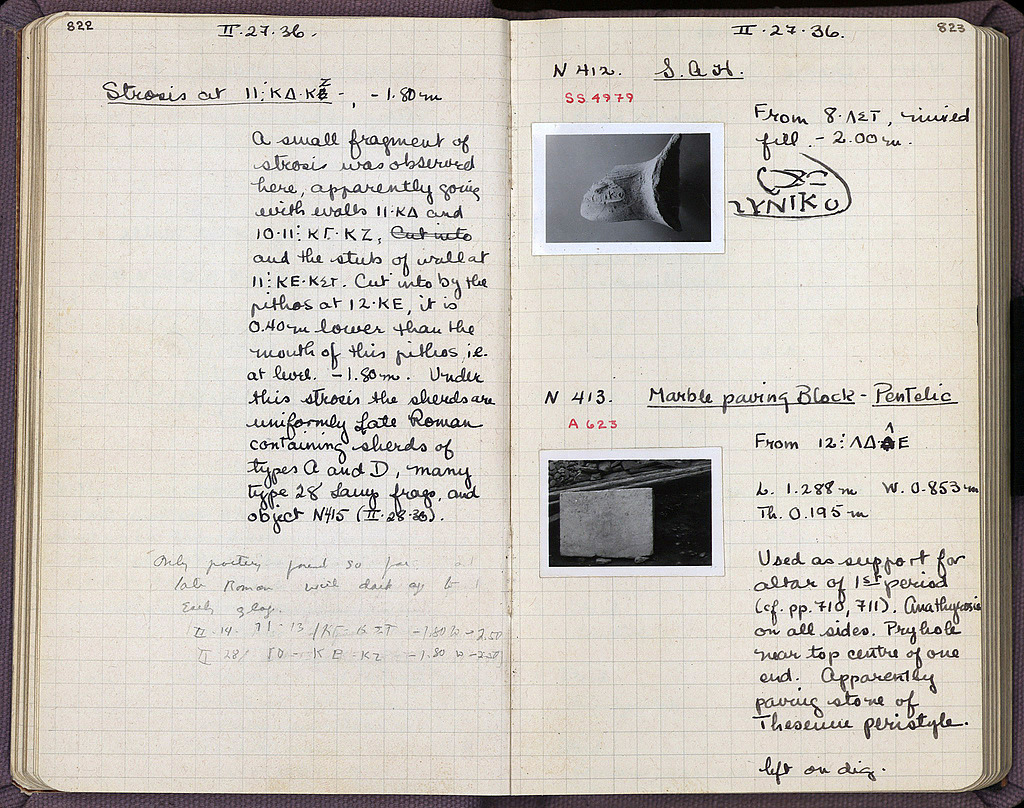 822
II·27·36.
Strosis at 11:ΚΔ·ΚΖ -, -1.80m
A small fragment of
strosis was observed
here, apparently going
with walls 11·ΚΔ and
10·11:ΚΓ·ΚΖ, Cut into
and the stub of wall at
11:ΚΕ·ΚΣΤ. Cut into by the
pithos at 12·ΚΕ, it is
0.40m lower than the
mouth of this pithos, i.e.
at level. -1.80m. Under
this strosis the sherds are
uniformly Late Roman
containing sherds of
types A and D, many
type 28 Lamp frags, and
object N415 (II·28·36).
Only pottery found so far
late Roman with
Early
II·14
II 28/
823
II·27·36.
N 412. S.A.H.
SS 4979
From 8·ΛΣΤ, mixed
fill. -2.00m.
ΝΙΚΟ
N 413. Marble paving Block - Pentelic
A 623
From 12:ΛΔ·ΛΕ
L. 1.288m W. 0.853m
Th. 0.195m
Used as support for
altar of 1st period
(cf. pp. 710, 711). Anathyrosis
on all sides. Pryhole
near top centre of one
end. Apparently
paving stone of
Theseum peristyle.
left on dig.